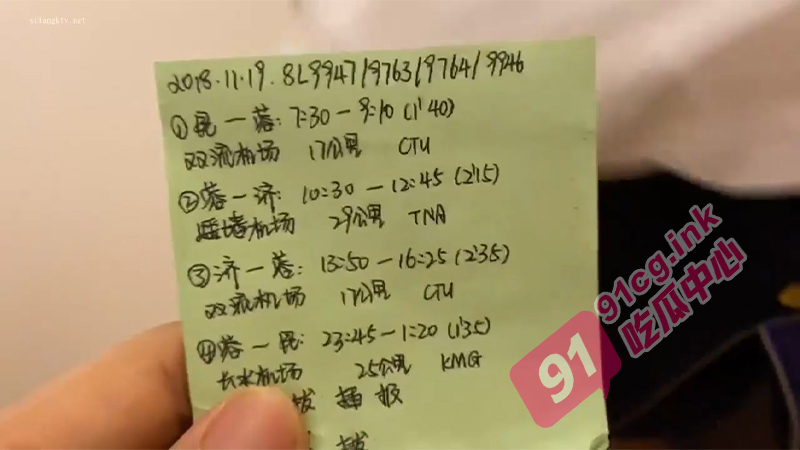 sifangktv.net
2018.11.19. 8L9947/9763/9764/9946
①昆一蓉: 7:30-9:10 (1'40)
双流机场 17公里 CTU
②蓉一济: 10:30-12:45 (2'15)
遥墙机场 29公里 TNA
③济一蓉: 13:50-16:25 (2'35)
双流机场 17公里 CTU
④蓉一昆: 23:45-1:20 (1'35)
长水机场 25公里 KMG
插报
91
91cg.ink
吃瓜中心